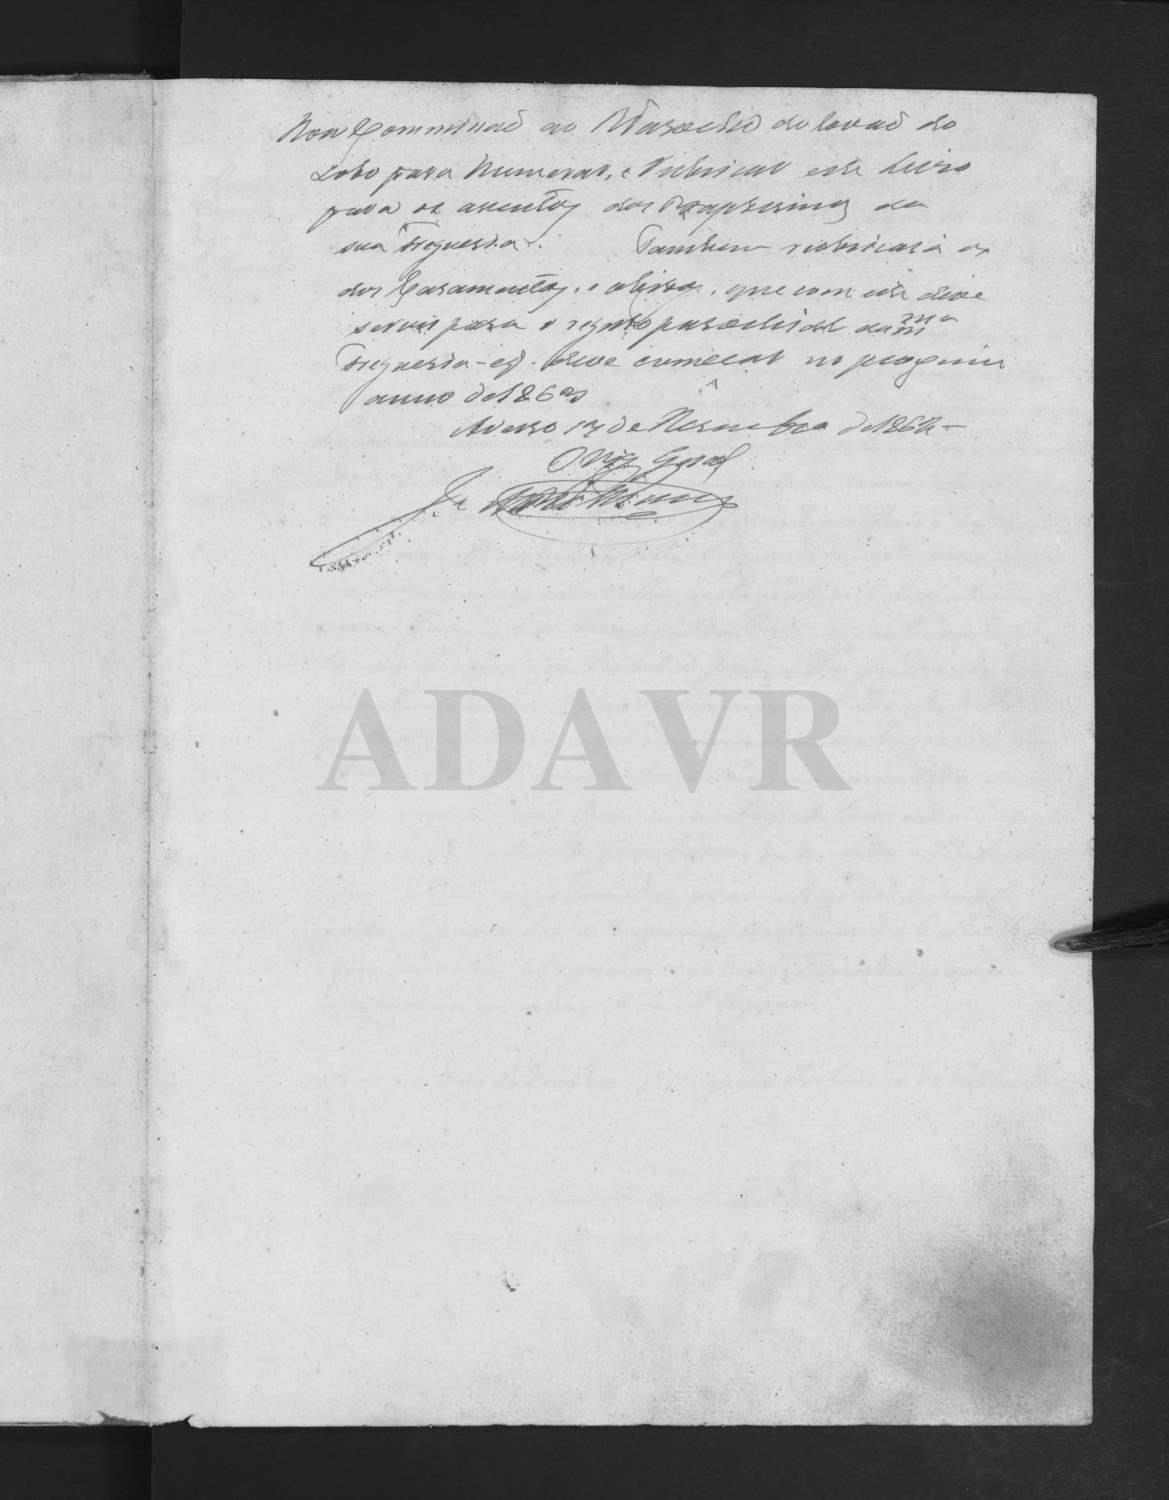 Dou Commissaõ ao Parocho de Covaõ do
Lobo para numerar, e rubricar este Livro
para os assentos dos Baptismos da
sua Freguesia. Tambem rubricará os
dos Casamentos, e obitos, que com este deve
servir para o registo parochial da mma
Freguesia - e q. deve começar no proximo
anno de 1863
Aveiro 17 de Desembro de 1862 -
O Vigº Geral
ADAVR